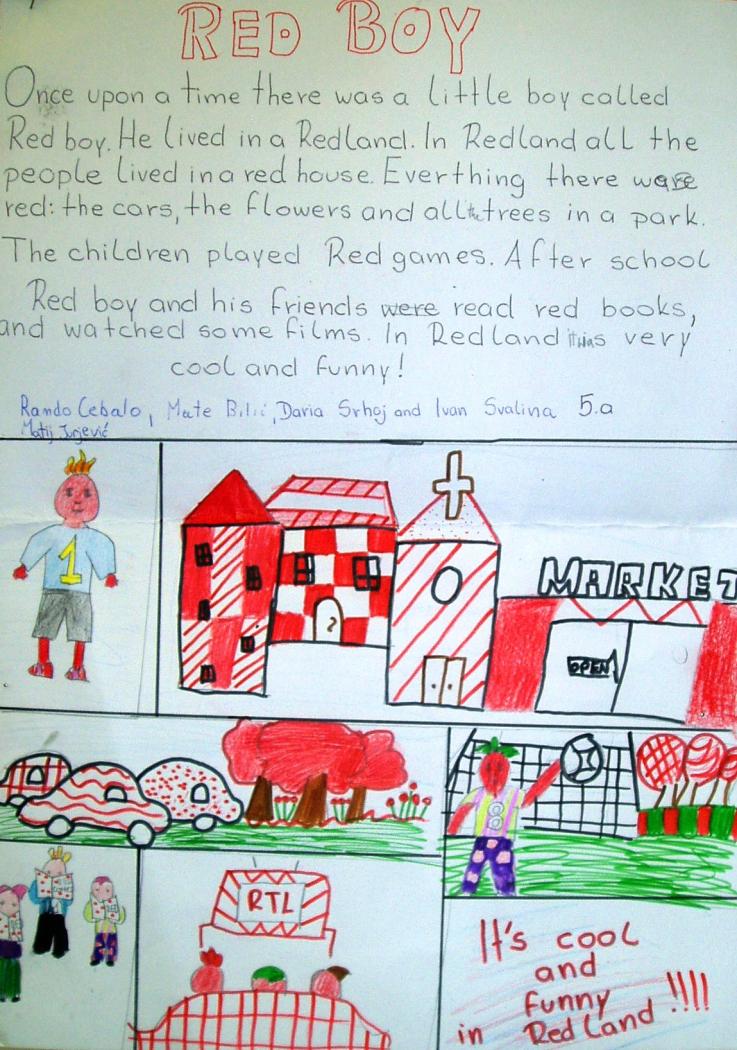 RED BOY
Once upon a time there was a little boy called
Red boy. He lived in a Redland. In Redland all the
people lived in a red house. Everthing there were
red: the cars, the flowers and all the trees in a park.
The children played Red games. After school
Red boy and his friends were read red books,
and watched some films. In Redland it was very
cool and funny!
Rando Cebalo, Mate Bilić, Daria Srhoj and Ivan Svalina 5.a
Matij Jurjević
1
MARKET
OPEN
8
RTL
It's cool
and
funny
in Red Land !!!!